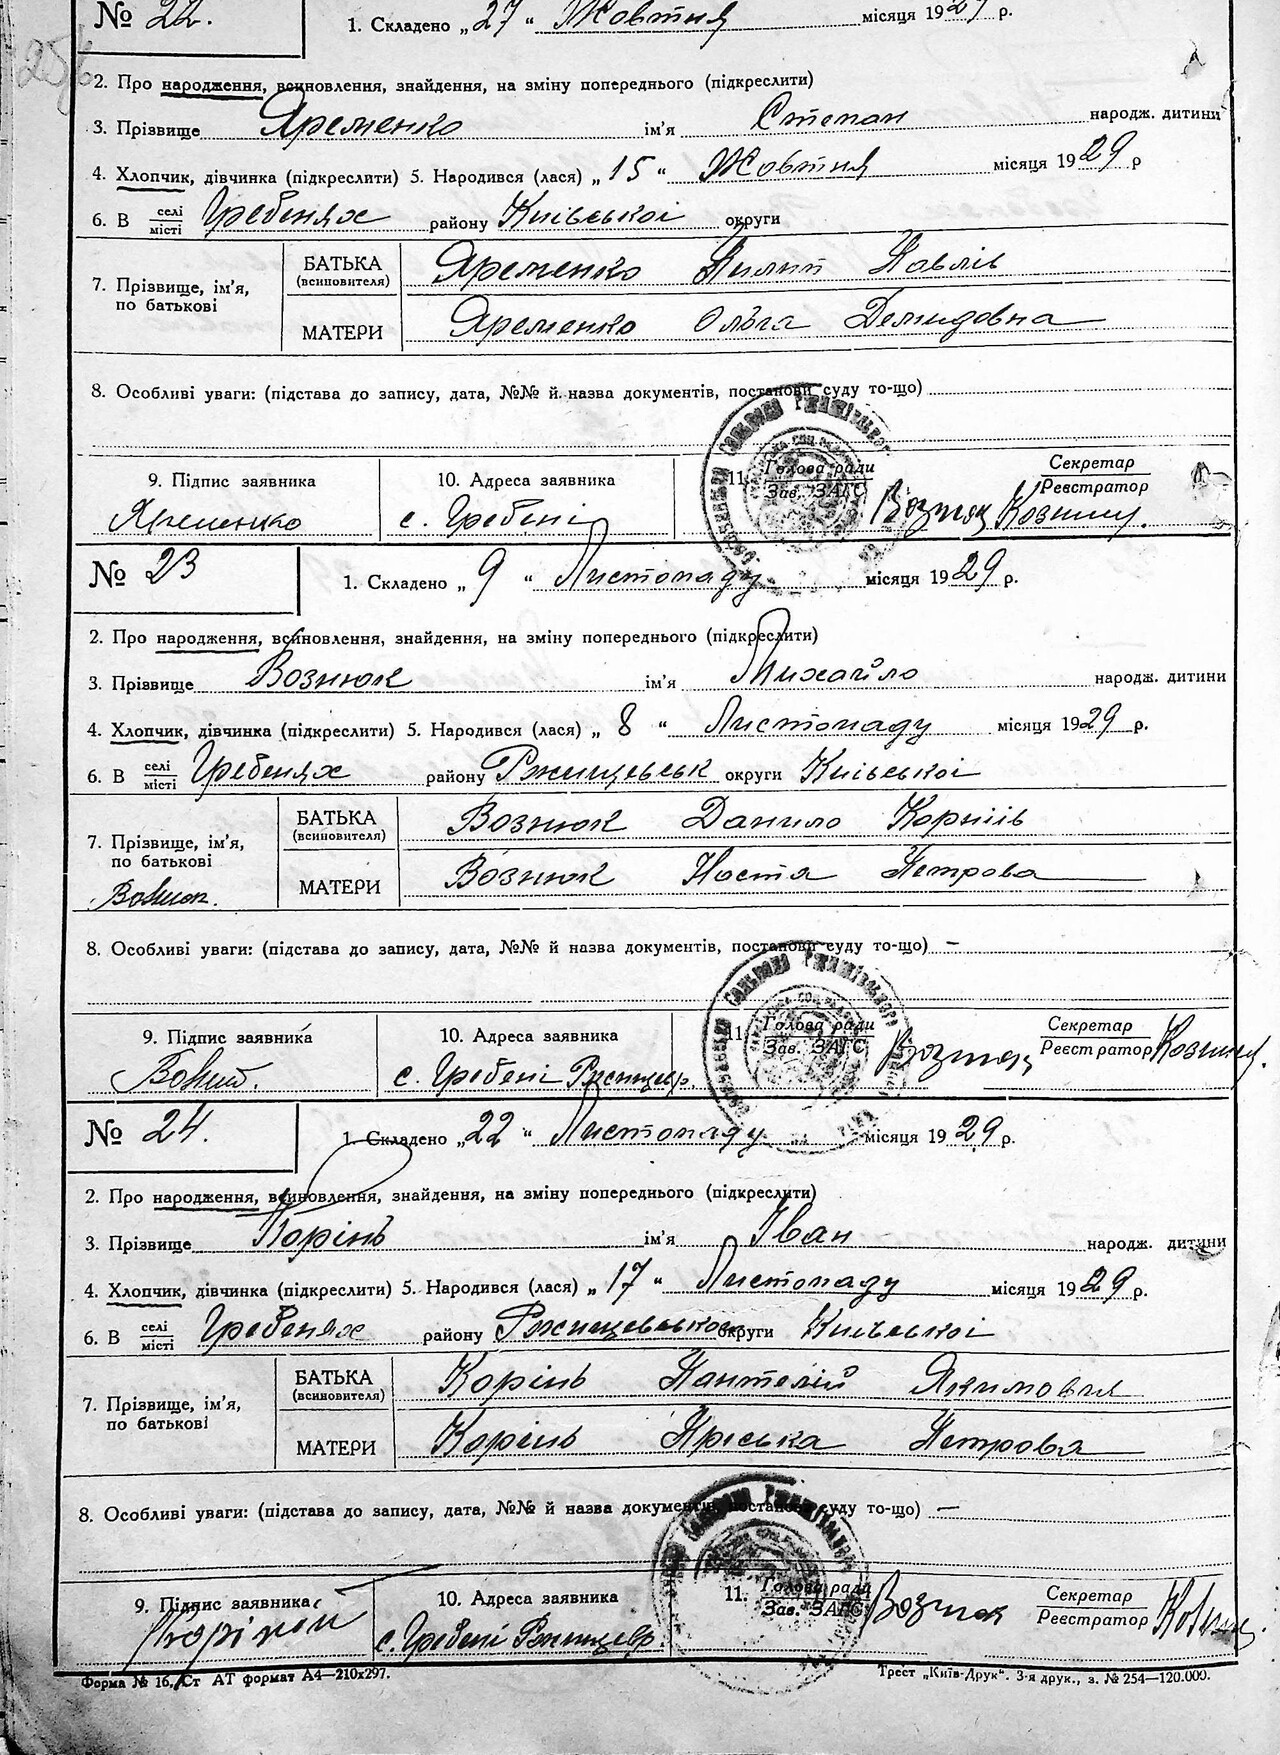 № 22. 1. Складено „27" Жовтня місяця 1929 р.
256
2. Про народження, всиновлення, знайдення, на зміну попереднього (підкреслити)
3. Прізвище Яременко ім'я Степан народж. дитини
4. Хлопчик, дівчинка (підкреслити) 5. Народився (лася) „15" Жовтня місяця 1929 р
6. В селі/місті Гребенях району Київської округи
7. Прізвище, ім'я, по батькові
БАТЬКА (всиновителя) Яременко Пилип Павлів
МАТЕРИ Яременко Ольга Демидовна
8. Особливі уваги: (підстава до запису, дата, №№ й назва документів, постанови суду то-що)
9. Підпис заявника 10. Адреса заявника 11. Голова ради/Зав. ЗАГС Секретар/Реєстратор
Яременко с. Гребені Возняк
№ 23 1. Складено „9" Листопаду місяця 1929 р.
2. Про народження, всиновлення, знайдення, на зміну попереднього (підкреслити)
3. Прізвище Вознюк ім'я Михайло народж. дитини
4. Хлопчик, дівчинка (підкреслити) 5. Народився (лася) „8" Листопаду місяця 1929 р.
6. В селі/місті Гребенях району Ржищевськ округи Київської
7. Прізвище, ім'я, по батькові
БАТЬКА (всиновителя) Вознюк Данило Корніів
МАТЕРИ Вознюк Настя Петрова
8. Особливі уваги: (підстава до запису, дата, №№ й назва документів, постанови суду то-що) —
9. Підпис заявника 10. Адреса заявника 11. Голова ради/Зав. ЗАГС Секретар/Реєстратор
с. Гребені Ржищевр. Возняк
№ 24. 1. Складено „22" Листопаду місяця 1929 р.
2. Про народження, всиновлення, знайдення, на зміну попереднього (підкреслити)
3. Прізвище Корінь ім'я Іван народж. дитини
4. Хлопчик, дівчинка (підкреслити) 5. Народився (лася) „17" Листопаду місяця 1929 р.
6. В селі/місті Гребенях району Ржищевського округи Київської
7. Прізвище, ім'я, по батькові
БАТЬКА (всиновителя) Корінь Пантелій Якимович
МАТЕРИ Корінь Пріська Петрова
8. Особливі уваги: (підстава до запису, дата, №№ й назва документів, постанови суду то-що) —
9. Підпис заявника 10. Адреса заявника 11. Голова ради/Зав. ЗАГС Секретар/Реєстратор
с. Гребені Ржищевр. Возняк
Форма № 16, Ст АТ формат А4—210х297. Трест „Київ-Друк". 3-я друк., з. № 254—120.000.